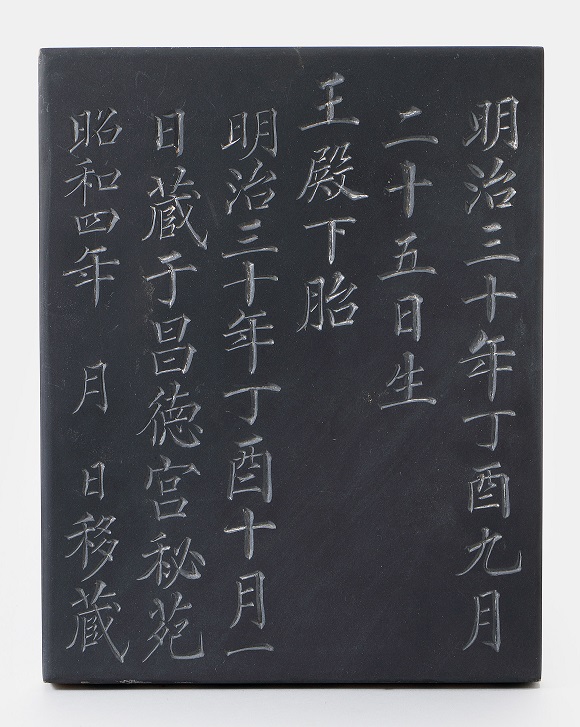 明治三十年丁酉九月
二十五日生
王殿下胎
明治三十年丁酉十月一
日蔵于昌徳宮秘苑
昭和四年 月 日移蔵